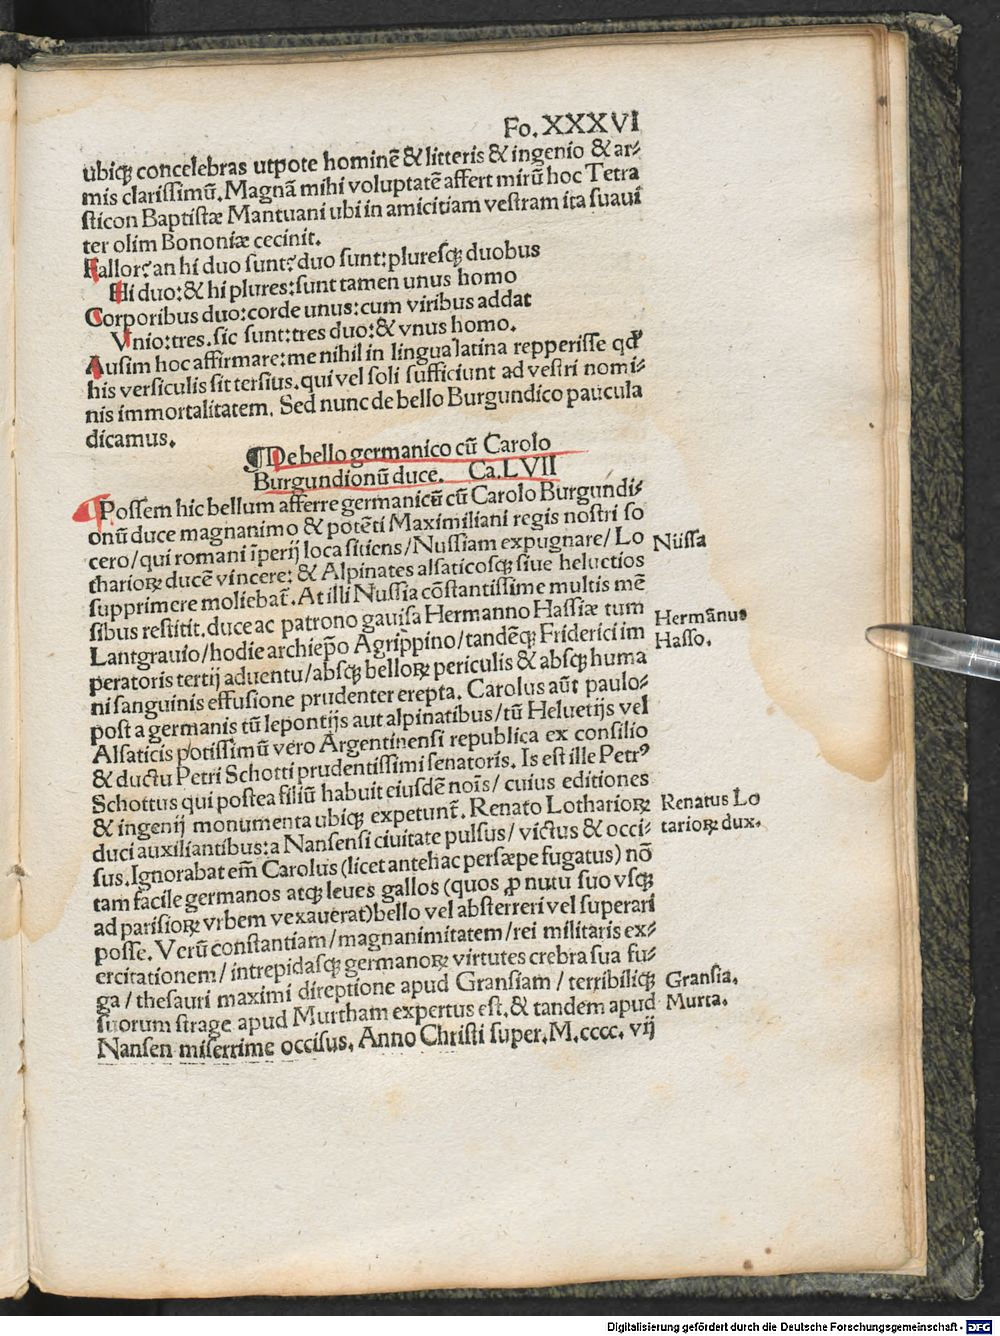 Fo. XXXVI
ubiqꝫ concelebras utpote hominē & litteris & ingenio & ar⸗
mis clarissimū. Magnā mihi voluptatē affert mirū hoc Tetra
sticon Baptistæ Mantuani ubi in amicitiam vestram ita suaui
ter olim Bononiæ cecinit.
Fallor? an hi duo sunt? duo sunt: pluresqꝫ duobus
Hi duo: & hi plures: sunt tamen unus homo
Corporibus duo: corde unus: cum viribus addat
Vnio: tres. sic sunt: tres duo: & vnus homo.
Ausim hoc affirmare: me nihil in lingua latina repperisse qđ
his versiculis sit tersius. qui vel soli sufficiunt ad vestri nomi⸗
nis immortalitatem. Sed nunc de bello Burgundico paucula
dicamus.
¶De bello germanico cū Carolo
Burgundionū duce. Ca. LVII
¶Possem hic bellum afferre germanicū cū Carolo Burgundi⸗
onū duce magnanimo & potēti Maximiliani regis nostri so
cero/ qui romani īperij loca sitiens/ Nussiam expugnare/ Lo
Nüssa
tharioꝝ ducē vincere: & Alpinates alsaticosqꝫ siue heluetios
supprimere moliebat̃. At illi Nussia cōstantissime multis mē
sibus restitit. duce ac patrono gauisa Hermanno Hassiæ tum
Hermānus
Lantgrauio/ hodie archiep̄o Agrippino/ tandēqꝫ Friderici im
Hasso.
peratoris tertij aduentu/ absqꝫ belloꝝ periculis & absqꝫ huma
ni sanguinis effusione prudenter erepta. Carolus aūt paulo⸗
post a germanis tū lepontijs aut alpinatibus/ tū Heluetijs vel
Alsaticis potissimū vero Argentinensi republica ex consilio
& ductu Petri Schotti prudentissimi senatoris. Is est ille Petrꝰ
Schottus qui postea filiū habuit eiusdē noīs/ cuius editiones
& ingenij monumenta ubiqꝫ expetunt̃. Renato Lotharioꝝ
Renatus Lo
duci auxiliantibus: a Nansensi ciuitate pulsus/ victus & occi⸗
tarioꝝ dux.
sus. Ignorabat em̄ Carolus (licet antehac persæpe fugatus) nō
tam facile germanos atqꝫ leues gallos (quos ꝓ nutu suo vsqꝫ
ad parisioꝝ vrbem vexauerat) bello vel absterreri vel superari
posse. Verū constantiam/ magnanimitatem/ rei militaris ex⸗
ercitationem/ intrepidasqꝫ germanoꝝ virtutes crebra sua fu⸗
ga/ thesauri maximi direptione apud Gransiam/ terribiliqꝫ
Gransia.
suorum strage apud Murtham expertus est. & tandem apud
Murta.
Nansen miserrime occisus. Anno Christi super. M. cccc. vij
Digitalisierung gefördert durch die Deutsche Forschungsgemeinschaft - DFG